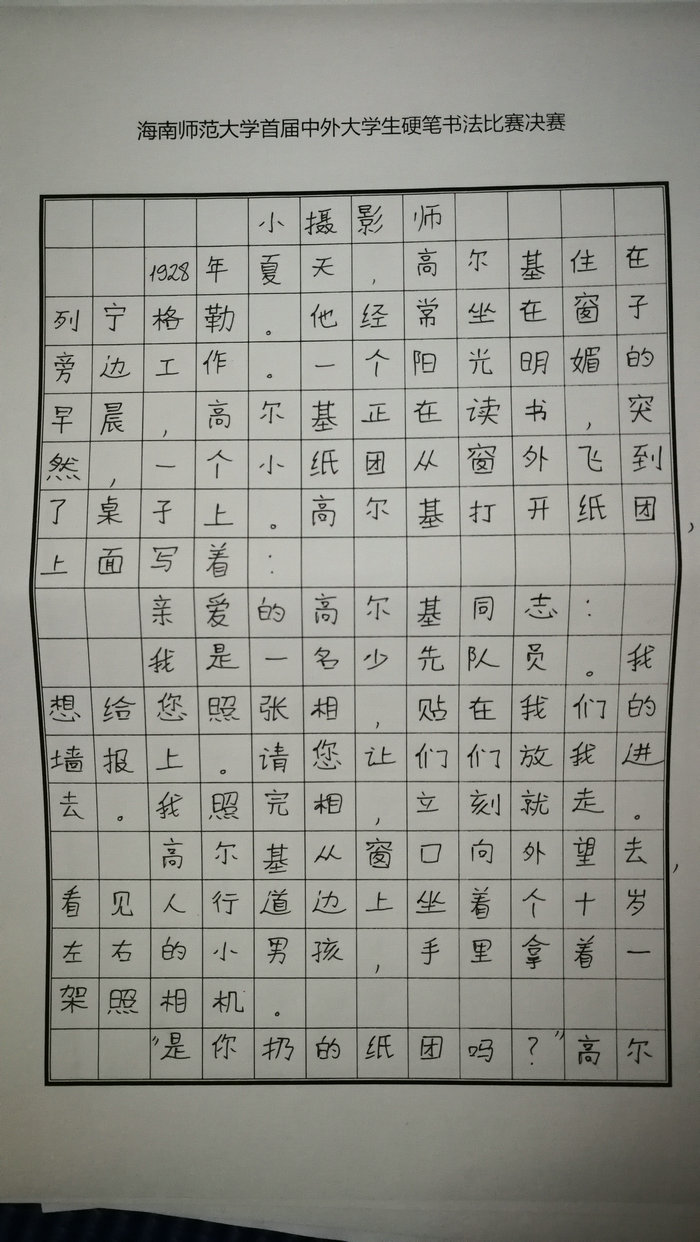 海南师范大学首届中外大学生硬笔书法比赛决赛
小摄影师
1928年夏天，高尔基住在
列宁格勒。他经常坐在窗子
旁边工作。一个阳光明媚的
早晨，高尔基正在读书，突
然，一个小纸团从窗外飞到
了桌子上。高尔基打开纸团，
上面写着：
亲爱的高尔基同志：
我是一名少先队员。我
想给您照张相，贴在我们的
墙报上。请您让们们放我进
去。我照完相，立刻就走。
高尔基从窗口向外望去，
看见人行道边上坐着个十岁
左右的小男孩，手里拿着一
架照相机。
“是你扔的纸团吗？”高尔